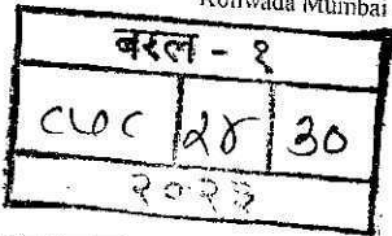 Koliwada Mumbai
बरल - १
८७८ २४ ३०
२०२३